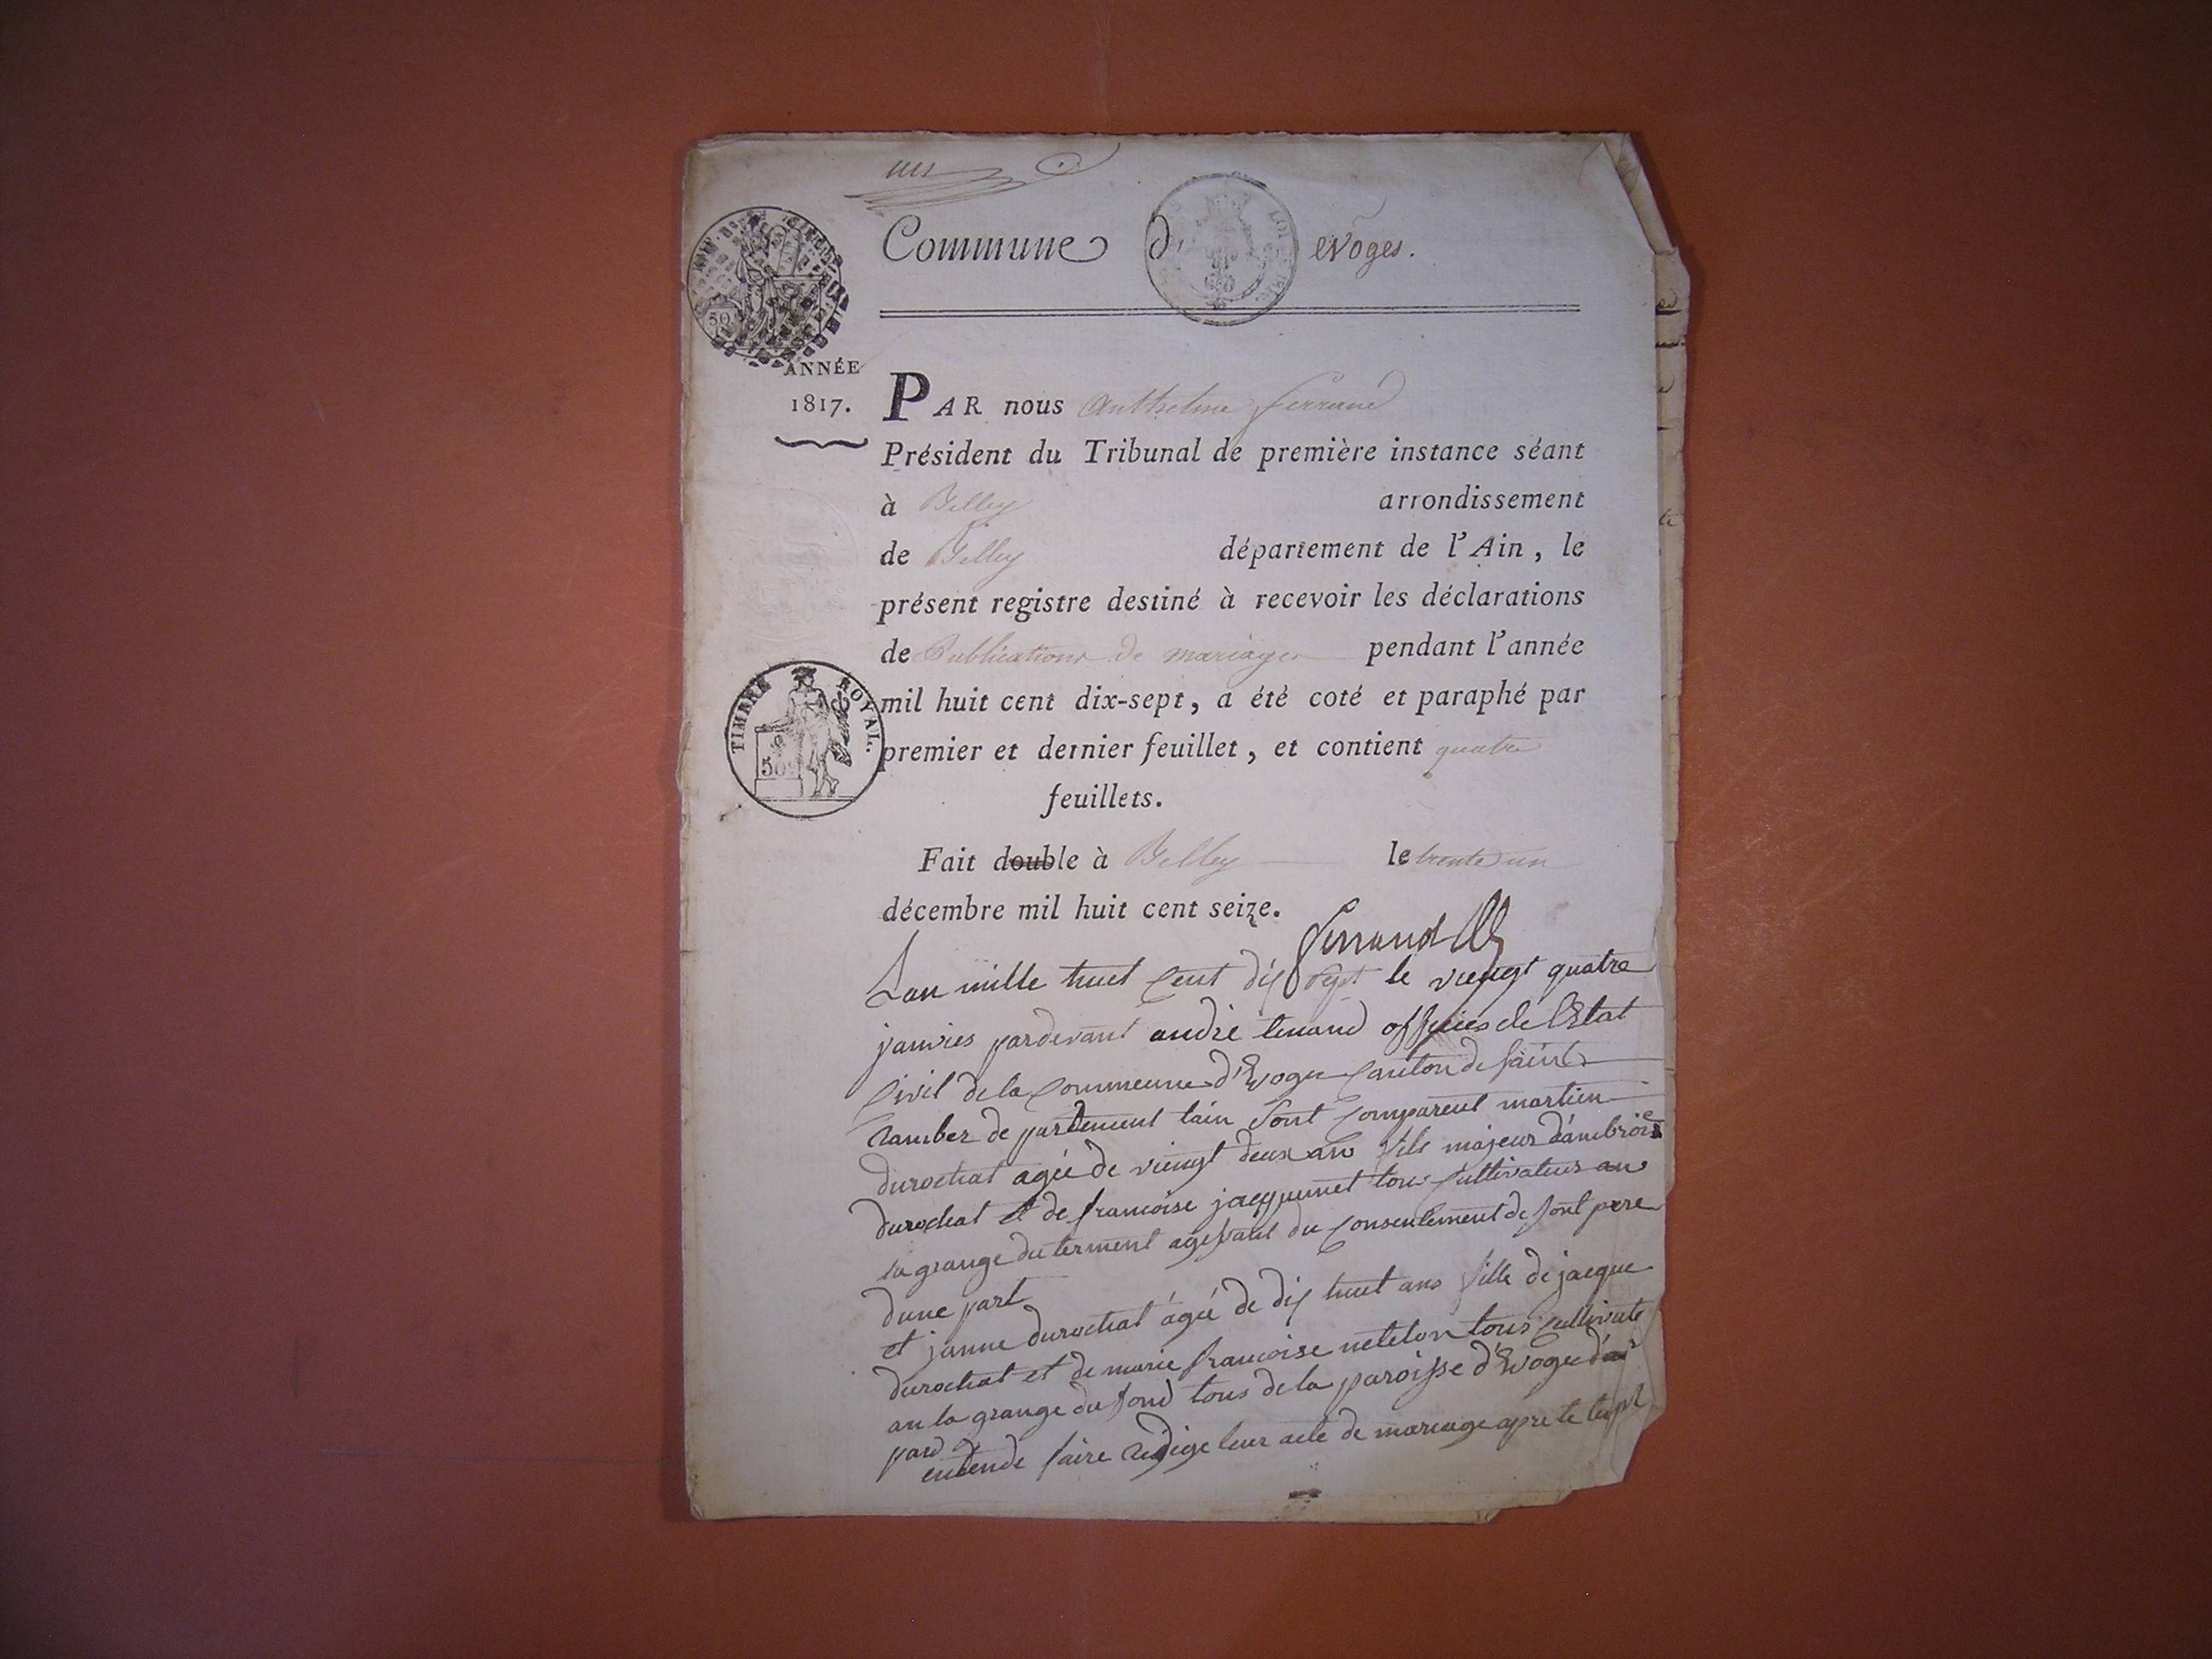 un
Commune d' Evoges.
ANNÉE
1817.
PAR nous Anthelme ferrand
Président du Tribunal de première instance séant
à Belley arrondissement
de Belley département de l'Ain, le
présent registre destiné à recevoir les déclarations
de Publications de mariages pendant l'année
TIMBRE ROYAL.
50
mil huit cent dix-sept, a été coté et paraphé par
premier et dernier feuillet, et contient quatre
feuillets.
Fait double à Belley le trente un
décembre mil huit cent seize.
Ferrand
Lan mille huit Cent dix Sept le viengt quatre
janvies pardevant andré tenand officies de lEtat
Civil de la Commeune d'Evoges Canton de Saint
Ramber de partement lain Sont Comparent martien
durochat agée de viengt deux ans fils majeur d'ambroise
durochat et de francoise jacquemet tous Cultivateur au
la grange du terment agissant du Consentement de sont pere
dune part
et janne durochat ágée de dix huit ans fille de jacque
durochat et de marie francoise neteton tous Cultivate
au la grange du fond tous de la paroisse d'Evoges
pard
entende faire Redige leur acte de mariage apre le